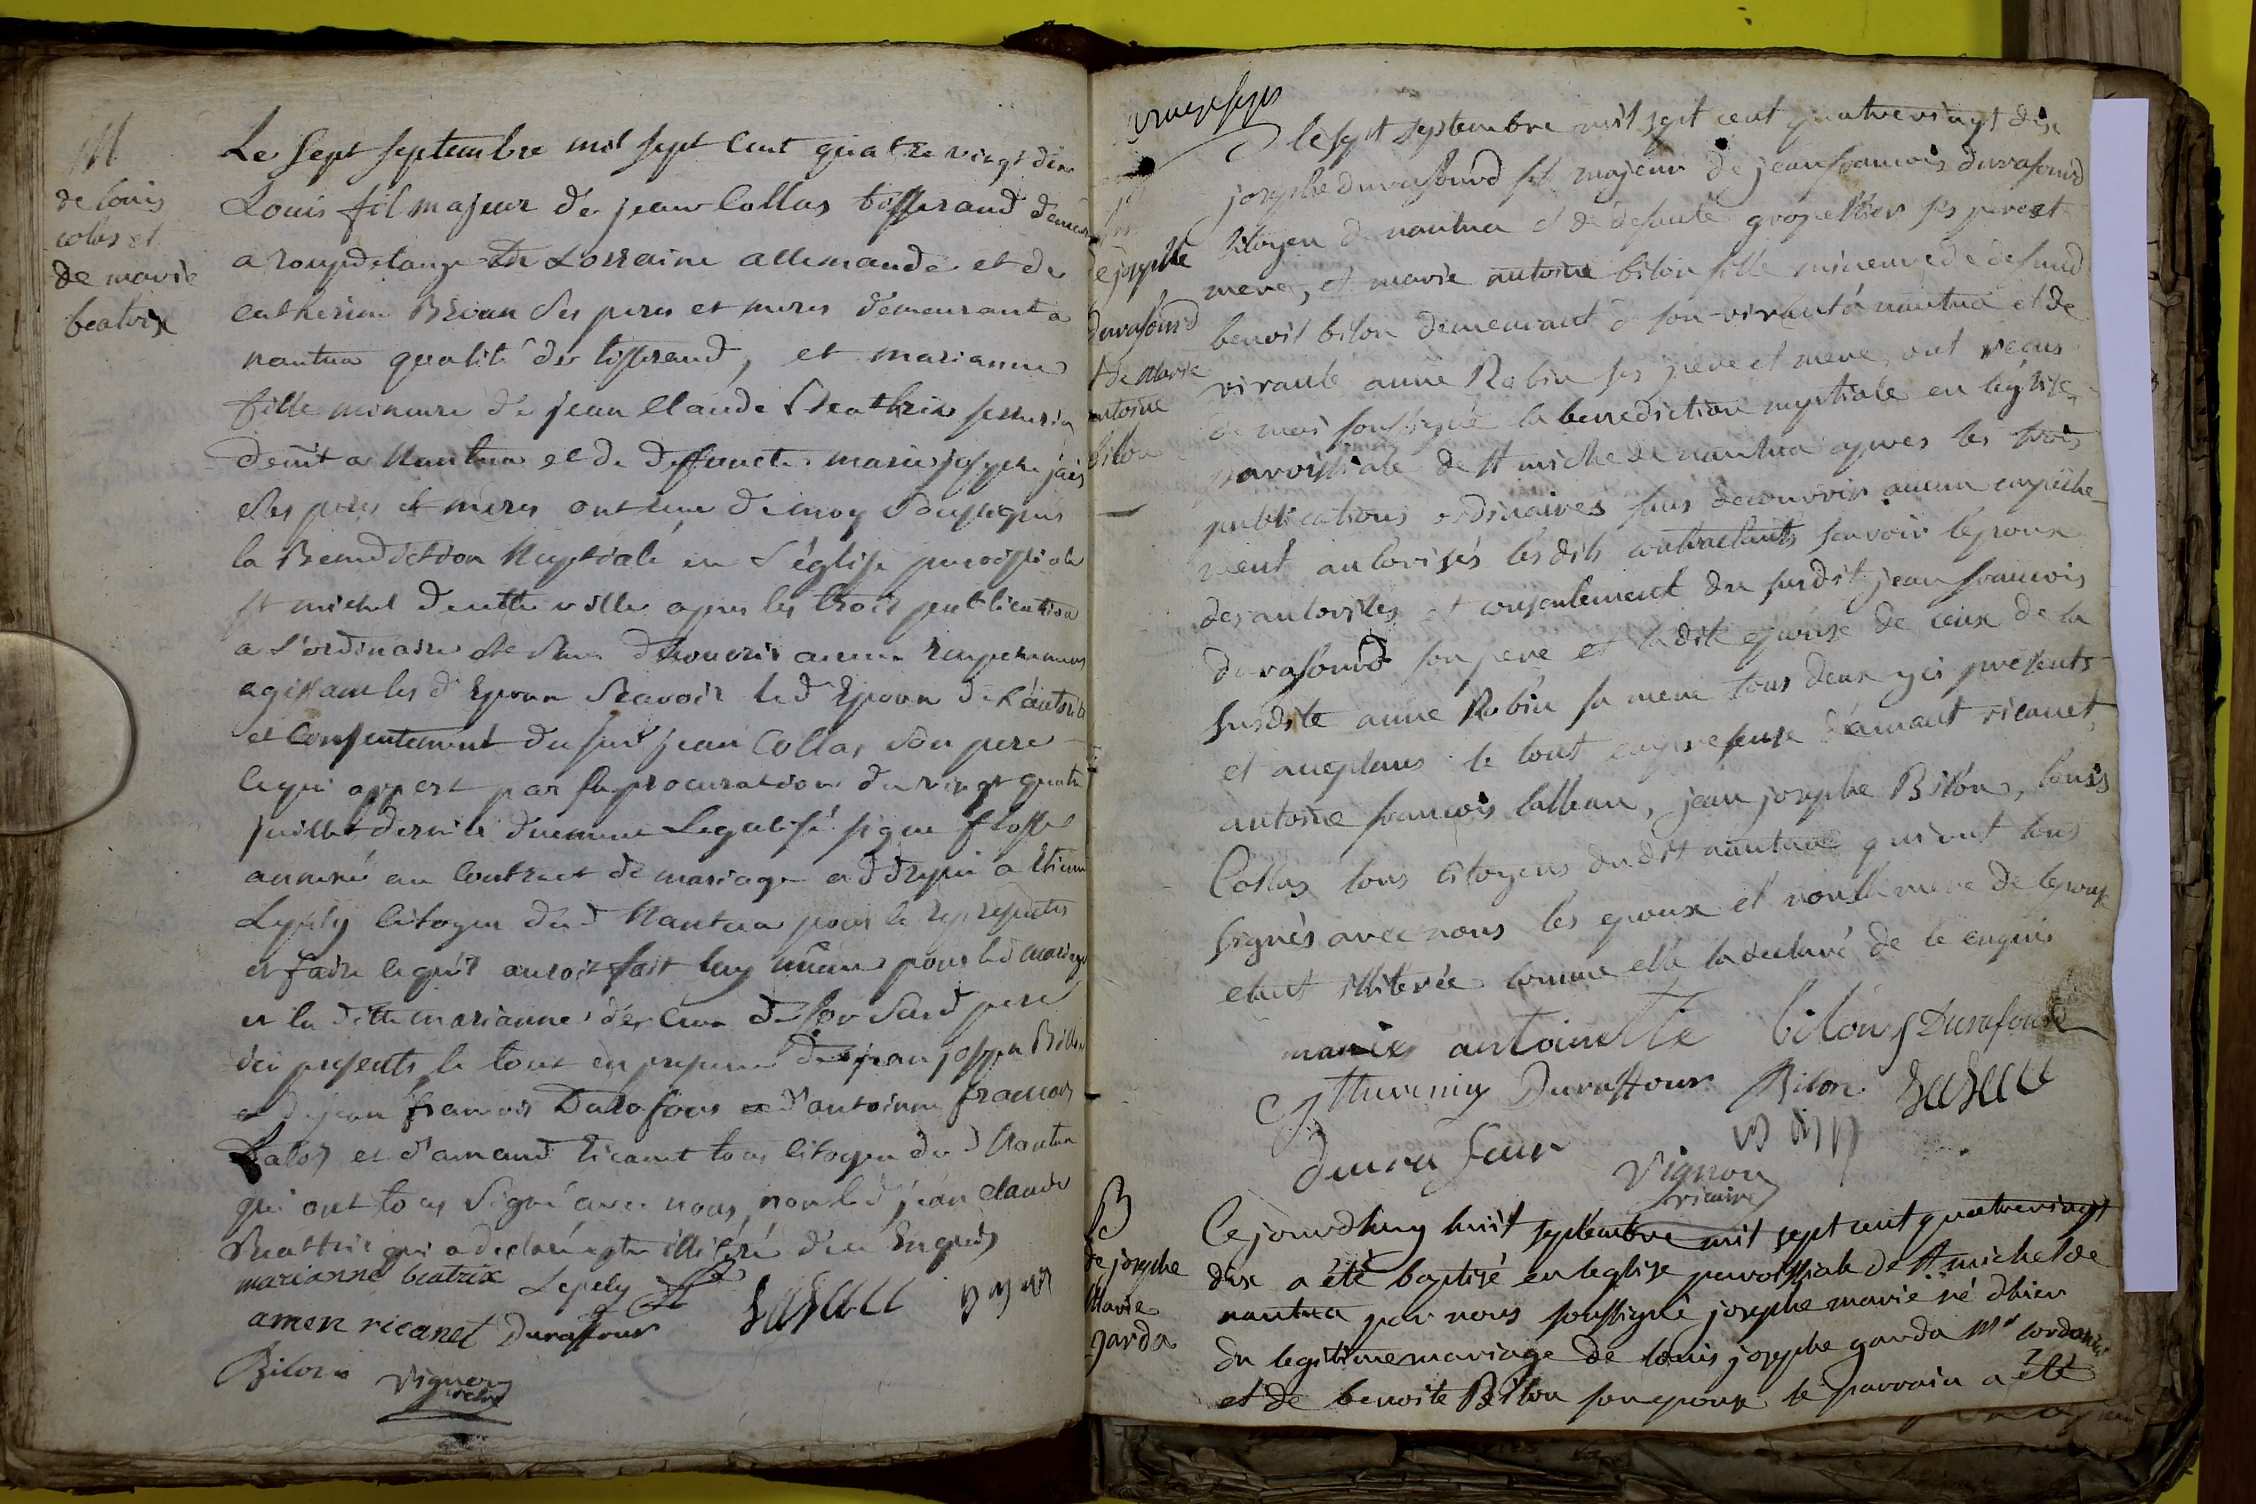 M
de louis
colas et
de marie
beatrix
Le Sept Septembre mil sept Cent quatre vingt dix
Louis fil majeur de jean Collas tisserand demeur
a roupeldange de Lorraine allemande et de
catherine ses peres et meres demeurant a
nantua qualité de tisserand, et marianne
fille mineure de jean Claude Beathrix
dem.t a Nantua et de deffuncte marie josephe jais
Ses peres et meres ont reçu de moy Soussigné
la Benediction Nuptiale en L'église paroissiale
st michel de cette ville apres les trois publication
a l'ordinaire et Sans decouvrir aucun empechement
agissant les d Epoux Scavoir le d Epoux de L'autorité
et Consentement du sus.d jean Collas Son pere
ce qui appert par sa procuration du vingt quatre
juillet dernier duement Legalisé signé
annexé au Contract de mariage addressé a Etienne
Lepely Citoyen du d Nantua pour le representer
et faire ce qu'il auroit fait luy même pour le d mariage
et la ditte marianne de Celui de son Sus d pere
ici presents le tout en presence de jean joseph Billon
et de jean francois Durafour et d'antoinne francois
Lalos et d'amand ricanet tous Citoyen du d Nantua
qui ont tous Signé avec nous, non le d jean Claude
Beattrix qui a declaré etre illiteré de ce Enquis
marianne beatrix Lepely
amen ricanet Duraffour
Bilon Vignon
vicaire
le sept septembre mil sept cent quatrevingt dix
de josephe
durafourd
et de Marie
antoine
bilon
josephe durafourd fil majeur de jean francois durafourd
Citoyen de nantua et de defunte grospellier ses pere et
mere, et marie antoine bilon fille mineure de defund
benoit bilon demeurant de son vivant á nantua et de
vivante anne Robin ses pere et mere, ont reçus
de moi soussigné la benediction nuptiale en l'église
paroissiale de st michel de nantua apres les trois
publications ordinaires sans decouvrir aucun empêche
ment autorisés lesdits contractants scavoir l'epoux
des autorités et consentement du susdit jean francois
durafourd son pere et ladite epouse de ceux de la
susdite anne Robin sa mere tous deux yci présents
et aceptans le tout en presense d'amant ricanet,
antoine francois lalleau, jean josephe Bilon, louis
Collas tous Citoyens dudit nantua qui ont tous
signés avec nous les epoux et non la mere de l'epouse
etant illiterée comme ellá la declaré de le enquis
marie antoinette bilon J Durafour
Duraffour Bilon
durafour
Vignon
vicaire
B
de josephe
Marie
garda
Cejourdhuy huit septembre mil sept cent quatrevingt
dix a été baptisé en leglise paroissiale de st michel de
nantua par nous soussigné josephe marie né d'hier
du legitime mariage de louis josephe garda Mr cordonier
et de benoite Bilon son epouse le parrain a été